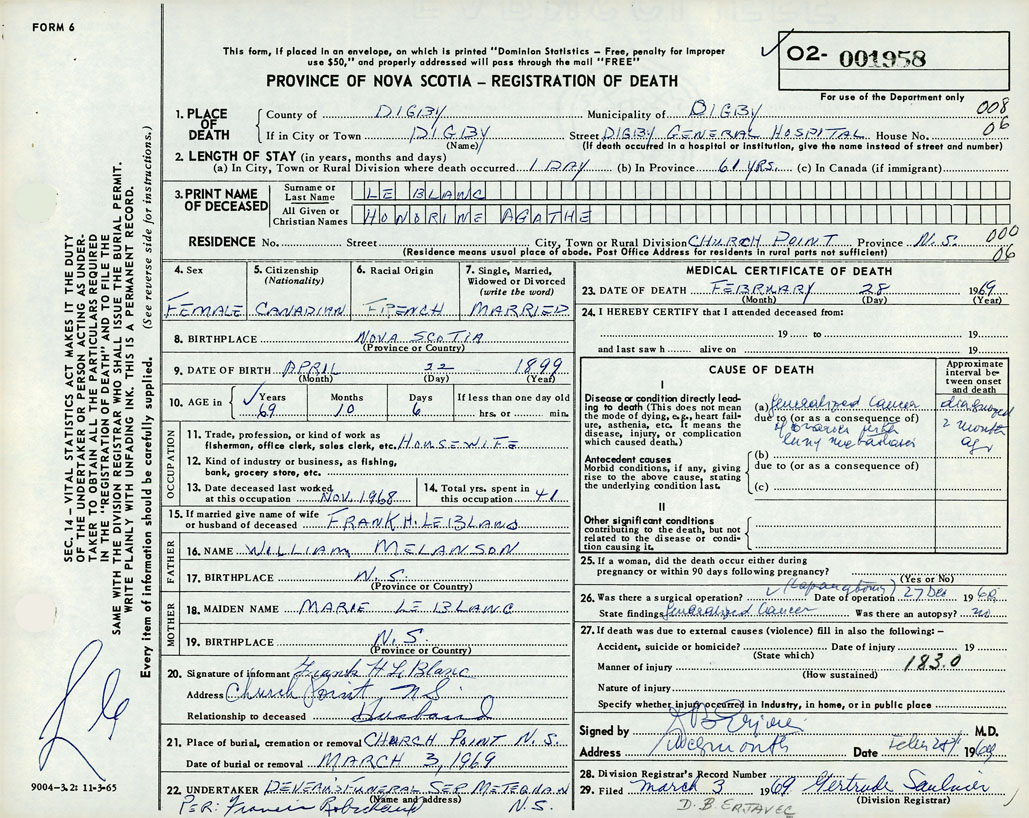 FORM 6
This form, if placed in an envelope, on which is printed "Dominion Statistics – Free, penalty for improper
use $50," and properly addressed will pass through the mail "FREE"
✓ O2- 001958
PROVINCE OF NOVA SCOTIA – REGISTRATION OF DEATH
For use of the Department only
SEC. 14 – VITAL STATISTICS ACT MAKES IT THE DUTY
OF THE UNDERTAKER OR PERSON ACTING AS UNDER-
TAKER TO OBTAIN ALL THE PARTICULARS REQUIRED
IN THE "REGISTRATION OF DEATH" AND TO FILE THE
SAME WITH THE DIVISION REGISTRAR WHO SHALL ISSUE THE BURIAL PERMIT.
WRITE PLAINLY WITH UNFADING INK. THIS IS A PERMANENT RECORD.
Every item of information should be carefully supplied. (See reverse side for instructions.)
1. PLACE OF DEATH
County of DIGBY Municipality of DIGBY 008
If in City or Town DIGBY Street DIGBY GENERAL HOSPITAL House No. 06
(Name) (If death occurred in a hospital or institution, give the name instead of street and number)
2. LENGTH OF STAY (in years, months and days)
(a) In City, Town or Rural Division where death occurred 1 DAY (b) In Province 61 YRS. (c) In Canada (if immigrant)
3. PRINT NAME OF DECEASED
Surname or Last Name LE BLANC
All Given or Christian Names HONORINE AGATHE
RESIDENCE No. Street City, Town or Rural Division CHURCH POINT Province N.S. 000
(Residence means usual place of abode. Post Office Address for residents in rural parts not sufficient) 06
4. Sex FEMALE
5. Citizenship (Nationality) CANADIAN
6. Racial Origin FRENCH
7. Single, Married, Widowed or Divorced (write the word) MARRIED
8. BIRTHPLACE NOVA SCOTIA
(Province or Country)
9. DATE OF BIRTH APRIL 22 1899
(Month) (Day) (Year)
10. AGE in Years Months Days If less than one day old
✓ 69 10 6 hrs. or min.
OCCUPATION
11. Trade, profession, or kind of work as
fisherman, office clerk, sales clerk, etc. HOUSEWIFE
12. Kind of industry or business, as fishing,
bank, grocery store, etc.
13. Date deceased last worked
at this occupation NOV. 1968
14. Total yrs. spent in
this occupation 41
15. If married give name of wife
or husband of deceased FRANK H. LE BLANC
FATHER
16. NAME WILLIAM MELANSON
17. BIRTHPLACE N.S.
(Province or Country)
MOTHER
18. MAIDEN NAME MARIE LE BLANC
19. BIRTHPLACE N.S.
(Province or Country)
20. Signature of informant Frank H Le Blanc
Address Church Point, N.S.
Relationship to deceased Husband
21. Place of burial, cremation or removal CHURCH POINT N.S.
Date of burial or removal MARCH 3, 1969
22. UNDERTAKER FUNERAL SER METEGHAN
(Name and address) N.S.
PER: Francis
9004–3.2: 11-3-65
MEDICAL CERTIFICATE OF DEATH
23. DATE OF DEATH FEBRUARY 28 1969
(Month) (Day) (Year)
24. I HEREBY CERTIFY that I attended deceased from:
19 to 19
and last saw h alive on 19
CAUSE OF DEATH
Approximate interval between onset and death
I
Disease or condition directly lead-
ing to death (This does not mean
the mode of dying, e.g., heart fail-
ure, asthenia, etc. It means the
disease, injury, or complication
which caused death.)
(a) Generalized Cancer
due to (or as a consequence of)
of ovaries with
lung metastases
diagnosed
2 months
ago
Antecedent causes
Morbid conditions, if any, giving
rise to the above cause, stating
the underlying condition last.
(b)
due to (or as a consequence of)
(c)
II
Other significant conditions
contributing to the death, but not
related to the disease or condi-
tion causing it.
25. If a woman, did the death occur either during
pregnancy or within 90 days following pregnancy?
(Yes or No)
26. Was there a surgical operation? ✓ (Laparotomy) Date of operation 27 Dec 1968
State findings Generalized Cancer Was there an autopsy? no
27. If death was due to external causes (violence) fill in also the following: –
Accident, suicide or homicide? Date of injury 19
(State which)
Manner of injury 183.0
(How sustained)
Nature of injury
Specify whether injury occurred in industry, in home, or in public place
Signed by M.D.
Address Weymouth Date Feb 28th 1969
28. Division Registrar's Record Number
29. Filed March 3 1969 Gertrude Saulnier
(Division Registrar)
D. B. ERJAVEC